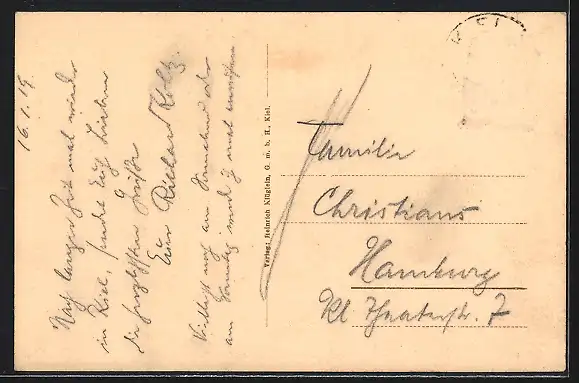 16.1.19
Nach langer Zeit mal wieder
in Kiel, sendet Euch Lieben
die herzlichsten Grüße
Euer Richard Koltz.
Vielleicht noch am Sonnabend oder
am Sonntag
Verlag: Heinrich Klüglein, G. m. b. H., Kiel.
Familie
Christians
Hamburg
Kl Theaterstr. 7